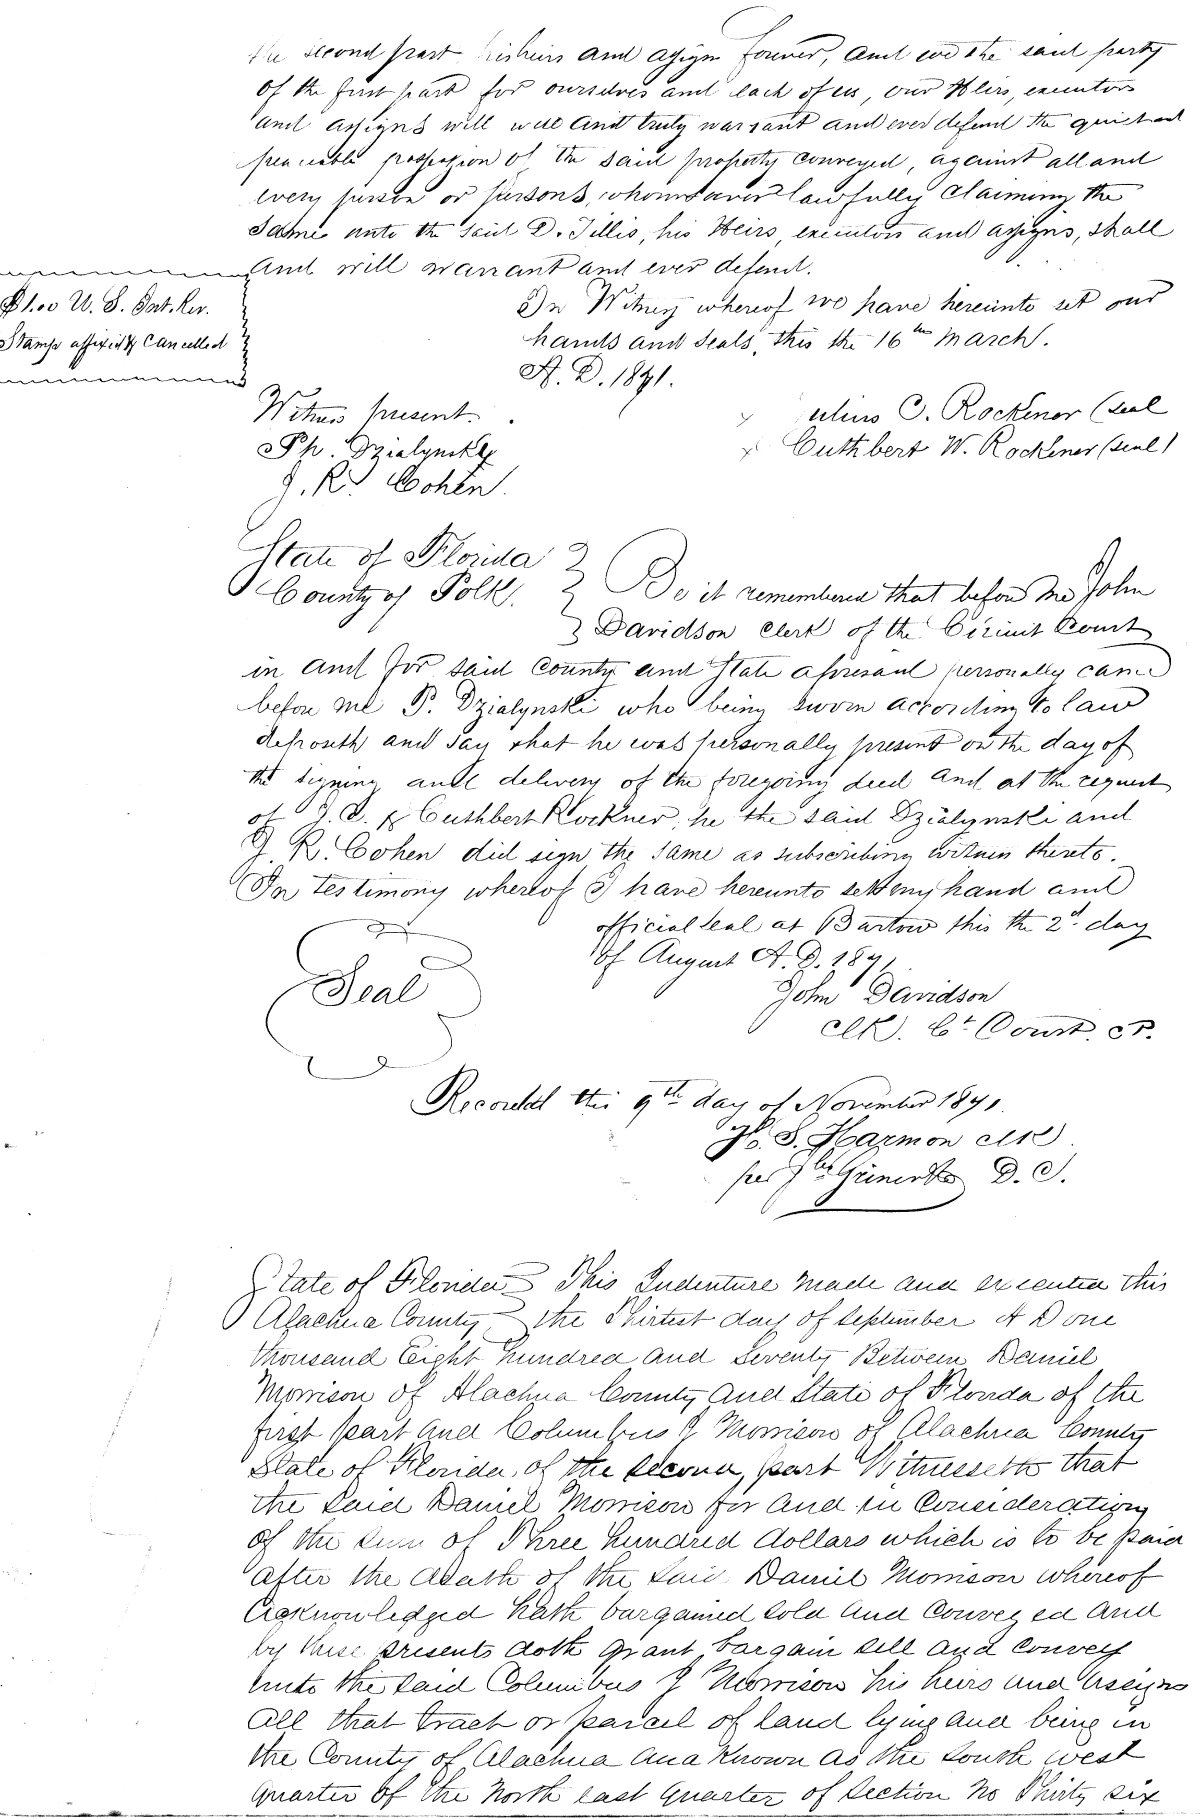 the second part his heirs and assigns forever, and we the said party
of the first part for ourselves and each of us, our Heirs, executors
and assigns will well and truly warrant and ever defend the quiet and
peaceable possession of the said property conveyed, against all and
every person or persons, whomsoever lawfully claiming the
same unto the said D. Tillis, his Heirs, executors and assigns, shall
and will warrant and ever defend.
$1.00 U. S. Int. Rev.
Stamp affixed & Cancelled
In Witness whereof we have hereunto set our
hands and seals, this the 16th March.
A. D. 1871.
Witness present.
Ph. Dzialynsky
J. R. Cohen.
Julius C. Rockner (seal
Cuthbert W. Rockner (seal)
State of Florida
County of Polk. Be it remembered that before me John
Davidson Clerk of the Circuit Court
in and for said County and State aforesaid personally came
before me P. Dzialynski who being sworn according to law
deposeth and say that he was personally present on the day of
the signing and delivery of the foregoing deed and at the request
of J. C. & Cuthbert Rockner, he the said Dzialynski and
J. R. Cohen did sign the same as subscribing witness thereto.
In testimony whereof I have hereunto set my hand and
official seal at Bartow this the 2d day
of August A. D. 1871.
Seal
John Davidson
Clk. Ct Court. P.
Recorded this 9th day of November 1871.
H. S. Harmon Clk
per D. C.
State of Florida This Indenture made and executed this
Alachua County the Thirtest day of September A D one
thousand Eight hundred and Seventy Between Daniel
Morrison of Alachua County and State of Florida of the
first part and Columbus J Morrison of Alachua County
State of Florida, of the second, part Witnesseth that
the said Daniel Morrison for and in Consideration
of the sum of Three hundred dollars which is to be paid
after the death of the said Daniel Morrison whereof
Acknowledged hath bargained sold and Conveyed and
by these presents doth grant bargain sell and convey
unto the said Columbus J Morrison his heirs and assigns
all that tract or parcel of land lying and being in
the County of Alachua and Known as the South west
quarter of the North east quarter of Section No Thirty six